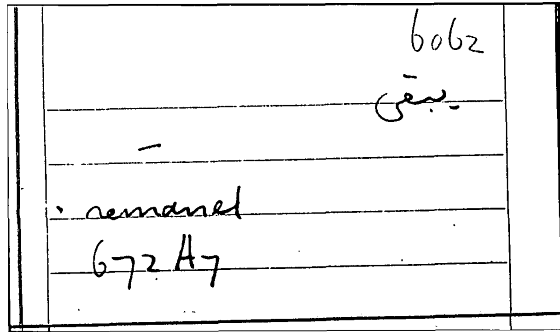 6062
يبقى
remanel
672 A7